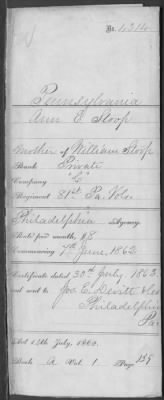 No. 4314
Pennsylvania
Ann E Stoop
Mother of William Stoop
Rank Private
Company "G"
Regiment 81st Pa. Vols.
Philadelphia Agency
Rate per month, $8
Commencing 7th June, 1862
Certificate dated 30th July, 1863
and sent to Jos. E. Devitt & Co
Philadelphia
Pa
Act 14th July, 1862.
Book A Vol. 1 Page 139